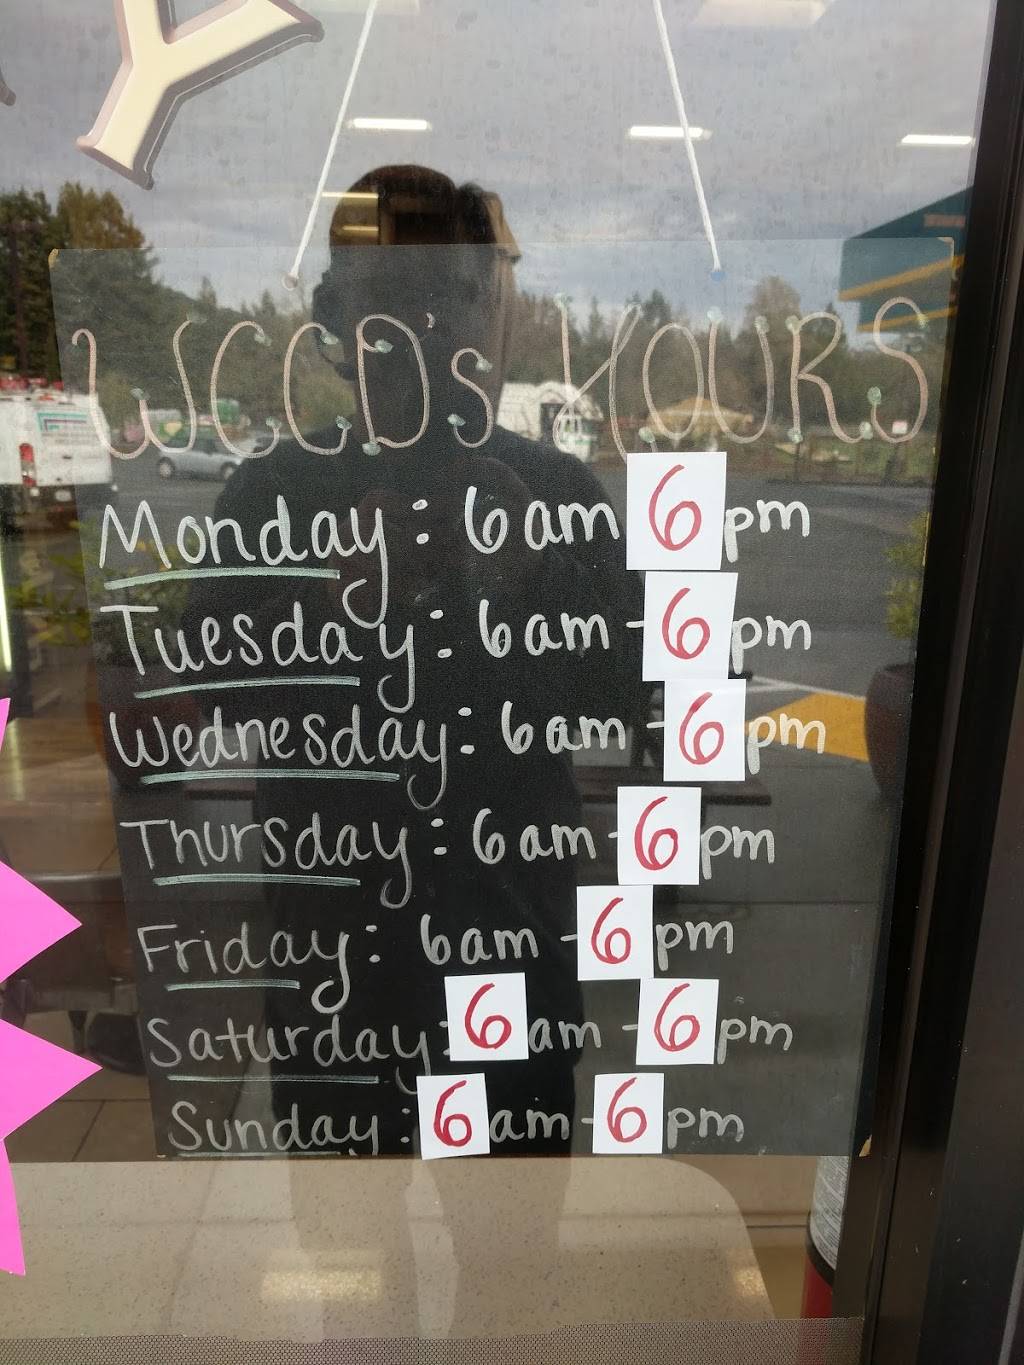 Y
WCCD's HOURS
Monday: 6am 6pm
Tuesday: 6am - 6pm
Wednesday: 6am - 6pm
Thursday: 6am - 6pm
Friday: 6am - 6pm
Saturday: 6am - 6pm
Sunday: 6am - 6pm